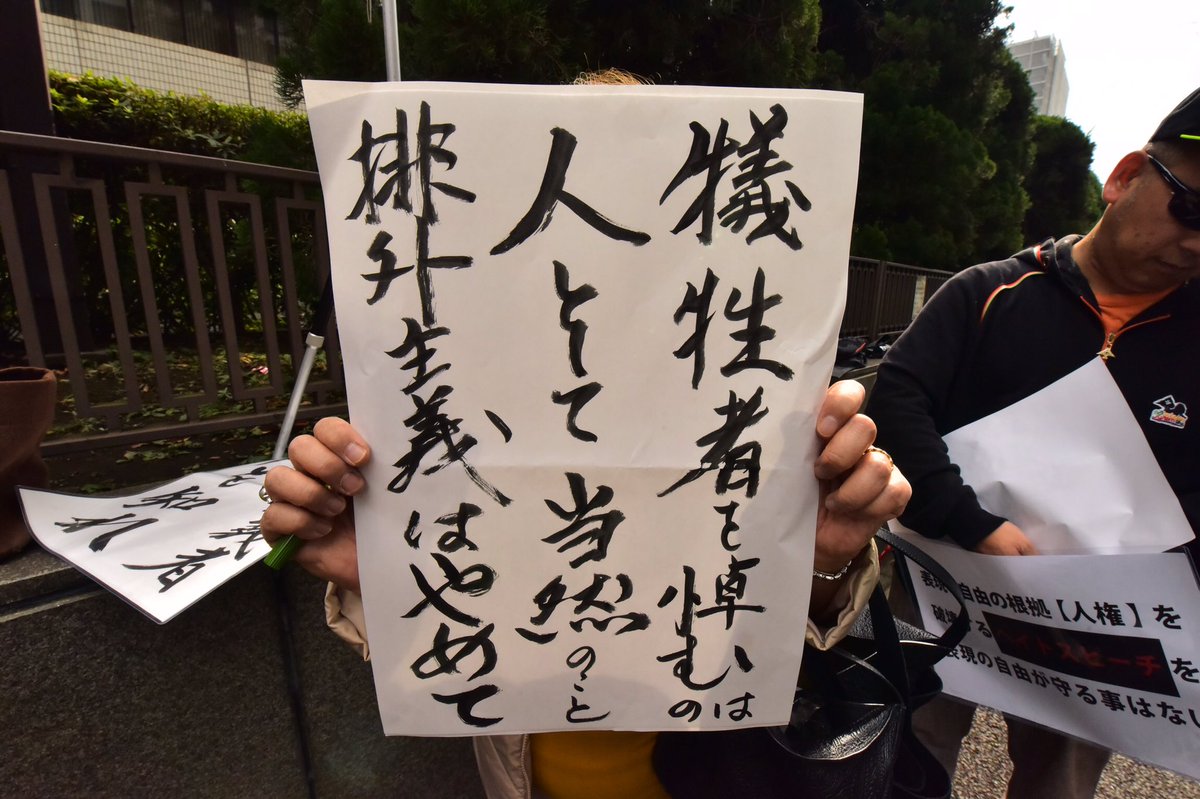 犠牲者を悼むのは
人として当然のこと
排外主義はやめて
義者
知れ
表現 自由の根拠【人権】を
破壊するヘイトスピーチを
表現の自由が守る事はない